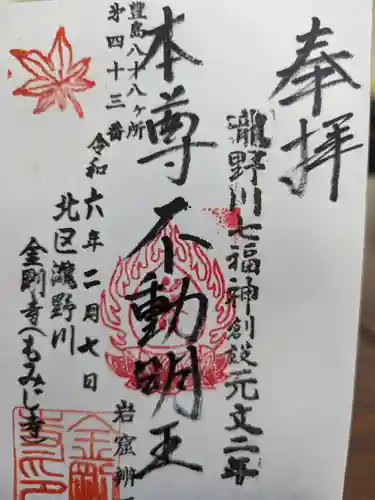 奉拝
瀧野川七福神創設元文二年
本尊不動明王
岩窟辨
豊島八十八ヶ所
第四十三番
令和六年二月七日
北区瀧野川
金剛寺(もみじ寺)